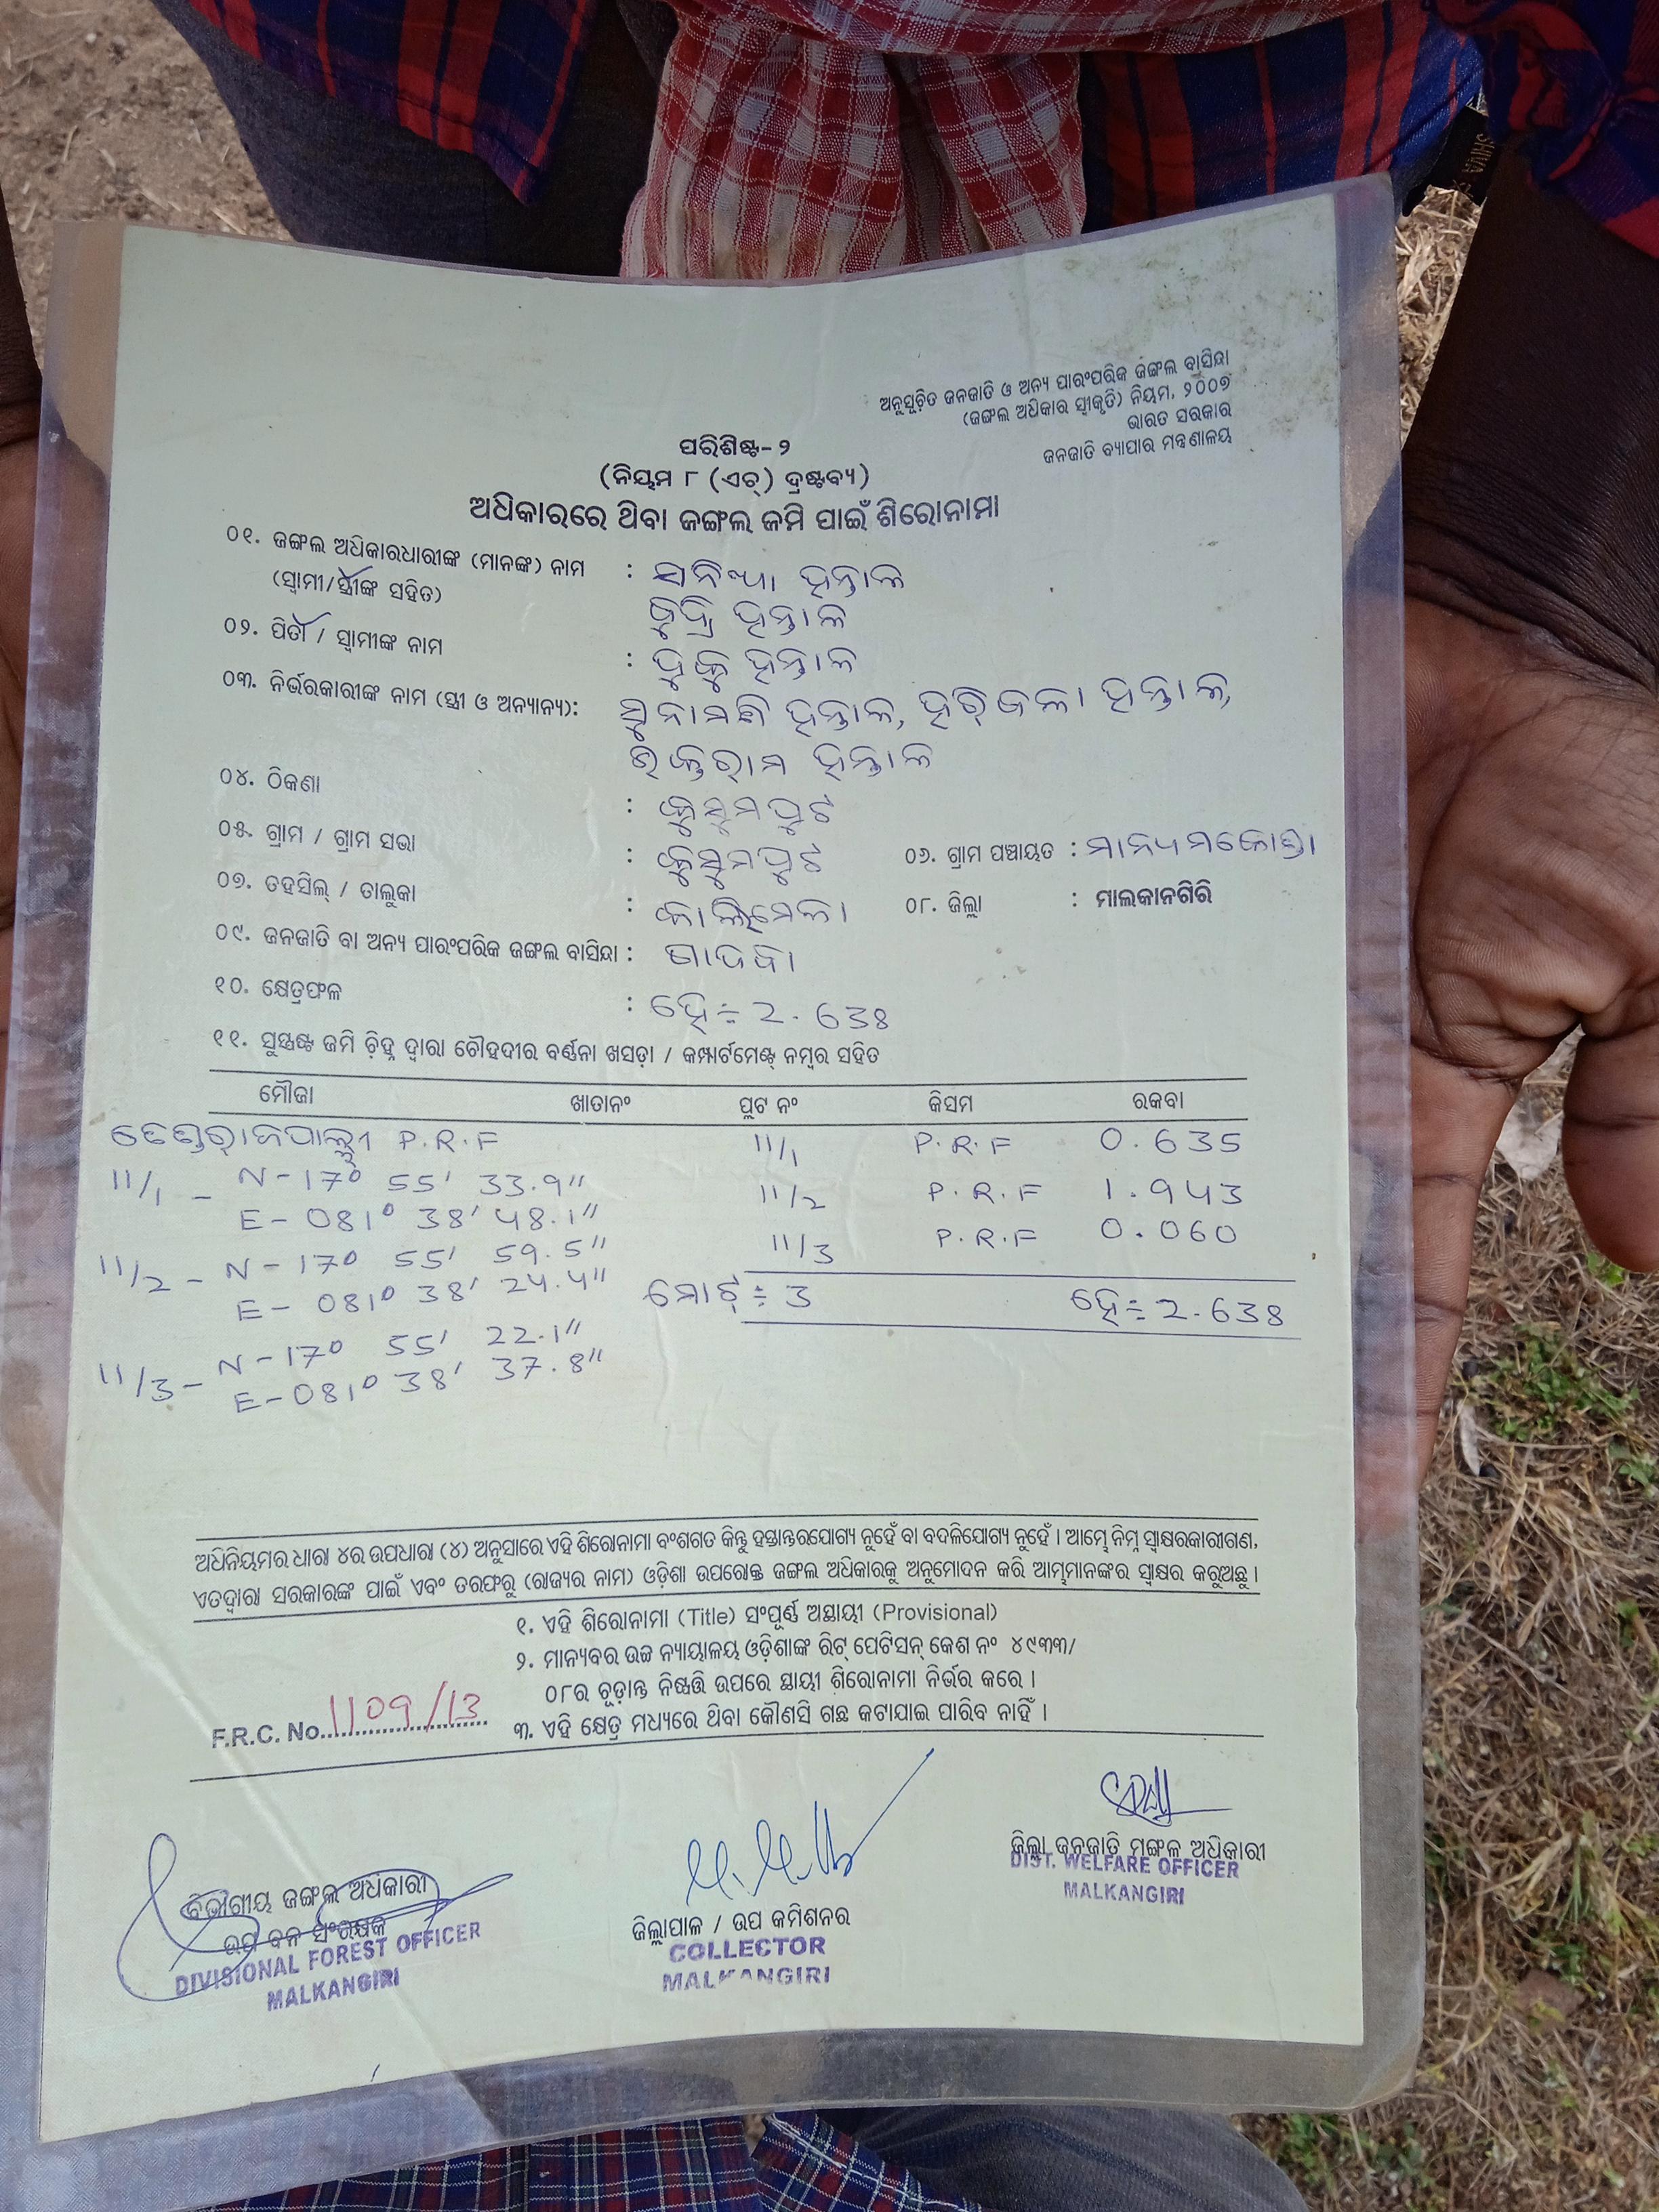 ଅନୁସୂଚିତ ଜନଜାତି ଓ ଅନ୍ୟ ପାରଂପରିକ ଜଙ୍ଗଲ ବାସିନ୍ଦା
(ଜଙ୍ଗଲ ଅଧିକାର ସ୍ୱୀକୃତି) ନିୟମ, ୨୦୦୭
ଭାରତ ସରକାର
ଜନଜାତି ବ୍ୟାପାର ମନ୍ତ୍ରଣାଳୟ
ପରିଶିଷ୍ଟ-୨
(ନିୟମ ୮ (ଏଚ୍) ଦ୍ରଷ୍ଟବ୍ୟ)
ଅଧିକାରରେ ଥିବା ଜଙ୍ଗଲ ଜମି ପାଇଁ ଶିରୋନାମା
୦୧. ଜଙ୍ଗଲ ଅଧିକାରଧାରୀଙ୍କ (ମାନଙ୍କ) ନାମ : ହନ୍ତାଳ
(ସ୍ୱାମୀ/ସ୍ତ୍ରୀଙ୍କ ସହିତ) ହନ୍ତାଳ
୦୨. ପିତା / ସ୍ୱାମୀଙ୍କ ନାମ : ହନ୍ତାଳ
୦୩. ନିର୍ଭରକାରୀଙ୍କ ନାମ (ସ୍ତ୍ରୀ ଓ ଅନ୍ୟାନ୍ୟ): ହନ୍ତାଳ, ହନ୍ତାଳ,
ହନ୍ତାଳ
୦୪. ଠିକଣା : କୁସୁମପୁଟ
୦୫. ଗ୍ରାମ / ଗ୍ରାମ ସଭା : କୁସୁମପୁଟ ୦୬. ଗ୍ରାମ ପଞ୍ଚାୟତ : ମାନ୍ୟମକୋଣ୍ଡା
୦୭. ତହସିଲ୍ / ତାଲୁକା : କାଲିମେଳା ୦୮. ଜିଲ୍ଲା : ମାଲକାନଗିରି
୦୯. ଜନଜାତି ବା ଅନ୍ୟ ପାରଂପରିକ ଜଙ୍ଗଲ ବାସିନ୍ଦା : ଗାଦବା
୧୦. କ୍ଷେତ୍ରଫଳ : ହେ÷ 2.638
୧୧. ସୁସ୍ପଷ୍ଟ ଜମି ଚିହ୍ନ ଦ୍ୱାରା ଚୌହଦୀର ବର୍ଣ୍ଣନା ଖସଡ଼ା / କମ୍ପାର୍ଟମେଣ୍ଟ୍ ନମ୍ବର ସହିତ
ମୌଜା ଖାତାନଂ ପ୍ଲଟ ନଂ କିସମ ରକବା
P.R.F 11/1 P.R.F 0.635
11/1 - N-17° 55' 33.9" 11/2 P.R.F 1.943
E-081° 38' 48.1" 11/3 P.R.F 0.060
11/2 - N-17° 55' 59.5"
E-081° 38' 24.4" ମୋଟ୍÷ 3 ହେ÷2.638
11/3 - N-17° 55' 22.1"
E-081° 38' 37.8"
ଅଧିନିୟମର ଧାରା ୪ର ଉପଧାରା (୪) ଅନୁସାରେ ଏହି ଶିରୋନାମା ବଂଶଗତ କିନ୍ତୁ ହସ୍ତାନ୍ତରଯୋଗ୍ୟ ନୁହେଁ ବା ବଦଳିଯୋଗ୍ୟ ନୁହେଁ । ଆମ୍ଭେ ନିମ୍ନ ସ୍ୱାକ୍ଷରକାରୀଗଣ,
ଏତଦ୍ୱାରା ସରକାରଙ୍କ ପାଇଁ ଏବଂ ତରଫରୁ (ରାଜ୍ୟର ନାମ) ଓଡ଼ିଶା ଉପରୋକ୍ତ ଜଙ୍ଗଲ ଅଧିକାରକୁ ଅନୁମୋଦନ କରି ଆମ୍ଭମାନଙ୍କର ସ୍ୱାକ୍ଷର କରୁଅଛୁ ।
୧. ଏହି ଶିରୋନାମା (Title) ସଂପୂର୍ଣ୍ଣ ଅସ୍ଥାୟୀ (Provisional)
୨. ମାନ୍ୟବର ଉଚ୍ଚ ନ୍ୟାୟାଳୟ ଓଡ଼ିଶାଙ୍କ ରିଟ୍ ପେଟିସନ୍ କେଶ ନଂ ୪୯୩୩/
୦୮ର ଚୂଡ଼ାନ୍ତ ନିଷ୍ପତ୍ତି ଉପରେ ସ୍ଥାୟୀ ଶିରୋନାମା ନିର୍ଭର କରେ ।
F.R.C. No. 1109/13 ୩. ଏହି କ୍ଷେତ୍ର ମଧ୍ୟରେ ଥିବା କୌଣସି ଗଛ କଟାଯାଇ ପାରିବ ନାହିଁ ।
ବିଭାଗୀୟ ଜଙ୍ଗଲ ଅଧିକାରୀ
ଉପ ବନ ସଂରକ୍ଷକ
DIVISIONAL FOREST OFFICER
MALKANGIRI
ଜିଲ୍ଲାପାଳ / ଉପ କମିଶନର
COLLECTOR
MALKANGIRI
ଜିଲ୍ଲା ଜନଜାତି ମଙ୍ଗଳ ଅଧିକାରୀ
DIST. WELFARE OFFICER
MALKANGIRI